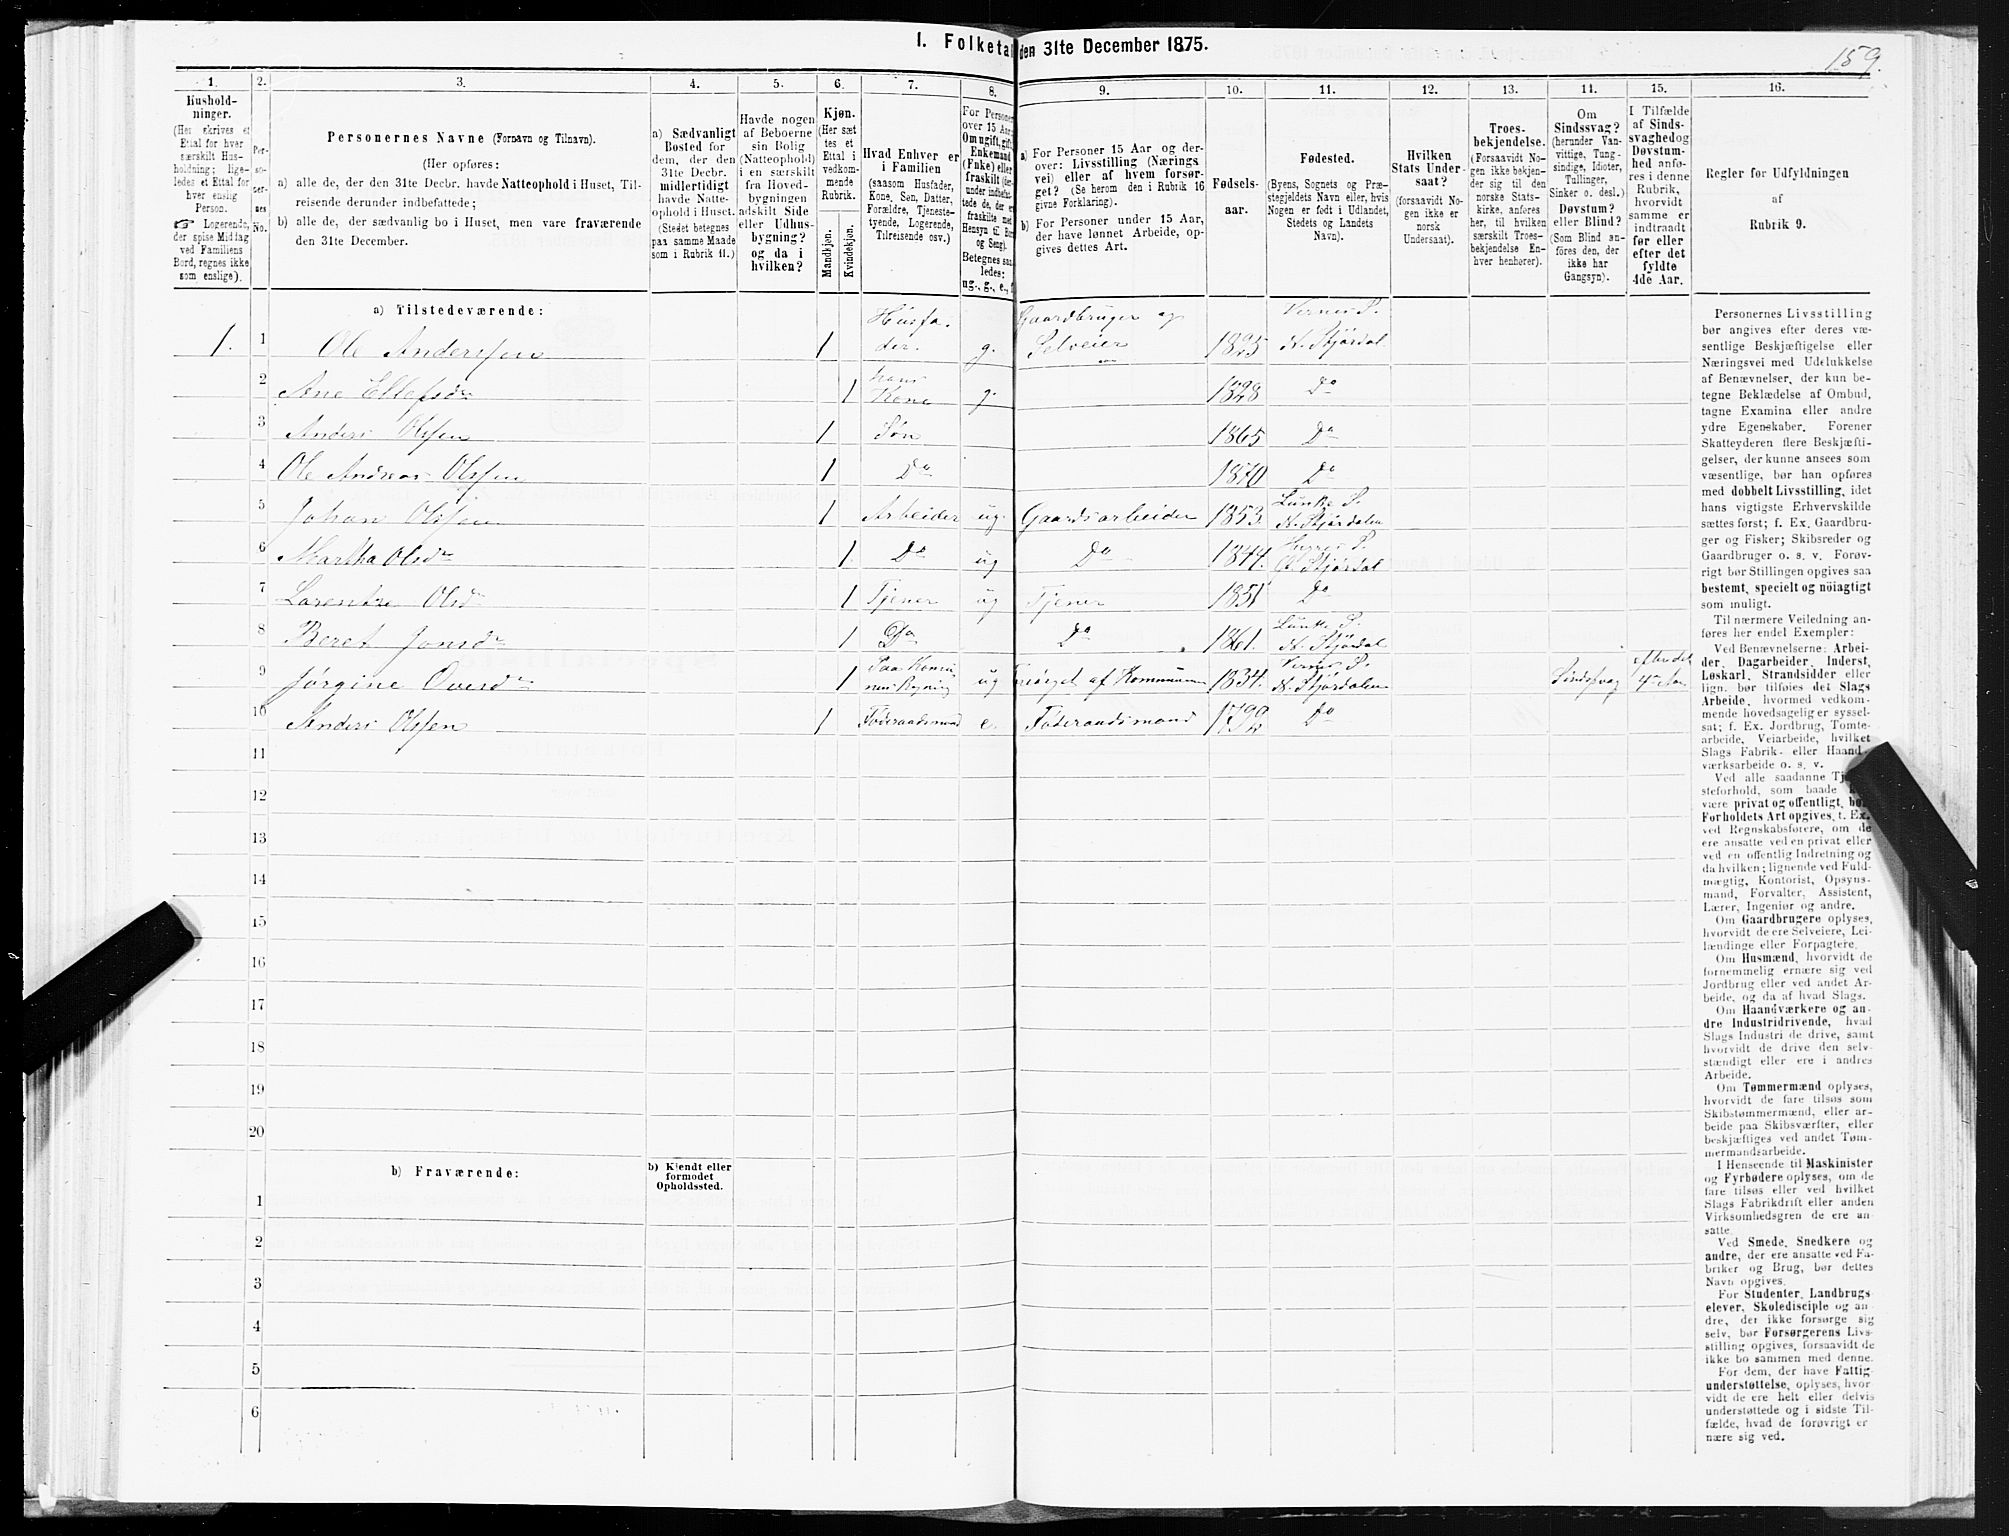 I. Folketal den 31te December 1875.
159.
1.
2.
3.
4.
5.
6.
7.
8.
9.
10.
11.
12.
13.
14.
15.
16.
Hushold-
ninger.
(Her skrives et
Ettal for hver
særskilt Hus-
holdning; lige-
ledes et Ettal for
hver enslig
Person.
☞ Logerende,
der spise Middag
ved Familiens
Bord, regnes ikke
som enslige).
Per-
so-
ner-
nes
No.
Personernes Navne (Fornavn og Tilnavn).
(Her opføres:
a) alle de, der den 31te Decbr. havde Natteophold i Huset, Til-
reisende derunder indbefattede;
b) alle de, der sædvanlig bo i Huset, men vare fraværende
den 31te December.
a) Sædvanligt
Bosted for
dem, der den
31te Decbr.
midlertidigt
havde Natte-
ophold i Huset.
(Stedet betegnes
paa samme Maade
som i Rubrik 11.)
Havde nogen
af Beboerne
sin Bolig
(Natteophold)
i en særskilt
fra Hoved-
bygningen
adskilt Side
eller Udhus-
bygning?
og da i
hvilken?
Kjøn.
(Her sæt-
tes et
Ettal i
vedkom-
mende
Rubrik.
Mandkjøn.
Kvindekjøn.
Hvad Enhver er
i Familien
(saasom Husfader,
Kone, Søn, Datter,
Forældre, Tjeneste-
tyende, Logerende,
Tilreisende osv.)
For Personer
over 15 Aar:
Om ugift, gift,
Enkemand
(Enke) eller
fraskilt
Betegnes saa-
ledes:
ug., g., e., f.
a) For Personer 15 Aar og der-
over: Livsstilling (Nærings-
vei) eller af hvem forsør-
get? (Se herom den i Rubrik 16
givne Forklaring).
b) For Personer under 15 Aar,
der have lønnet Arbeide, op-
gives dettes Art.
Fødsels-
aar.
Fødested.
(Byens, Sognets og Præ-
stegjeldets Navn eller, hvis
Nogen er født i Udlandet,
Stedets og Landets
Navn).
Hvilken
Stats Under-
saat?
(forsaavidt No-
gen ikke er
norsk
Undersaat).
Troes-
bekjendelse.
(Forsaavidt No-
gen ikke bekjen-
der sig til den
norske Stats-
kirke, anføres
her, til hvilken
særskilt Troes-
bekjendelse En-
hver henhører).
Om
Sindssvag?
(herunder Van-
vittige, Tung-
sindige, Idioter,
Tullinger,
Sinker o. desl.)
Døvstum?
eller Blind?
(Som Blind an-
føres den, der
ikke har
Gangsyn).
I Tilfælde
af Sinds-
svaghed og
Døvstum-
hed anfø-
res i denne
Rubrik,
hvorvidt
samme er
indtraadt
før eller
efter det
fyldte
4de Aar.
Regler for Udfyldningen
af
Rubrik 9.
a) Tilstedeværende:
1. 1 Ole Andersen 1 Husfader. g. Gaardbruger og Selveier 1825 Vernes S. N. Stjørdal
2 Ane Ellefsdr 1 hans Kone g. 1828 Do
3 Anders Olsen 1 Søn 1865 Do
4 Ole Andreas Olsen 1 Do 1870 Do
5 Johan Olsen 1 Arbeider ug. Gaardsarbeider 1853. Lunke S. N. Stjørdalen
6 Martha Olsdr 1. Do ug Do 1844. Ø. Stjørdal
7 Lorentze Olsdr 1 Tjener ug Tjener 1851 Do
8 Beret Jonsdr 1 Do Do 1861. Lunke S. N. Stjørdal
9 Jørgine Oversdr 1 Paa ug Forsørget af Kommunen 1834. Vernes S. N. Stjørdalen Sindssvag efter det 4de Aar
10 Anders Olsen 1 Føderaadsmand e. Føderaadsmand 1792 Do
11
12
13
14
15
16
17
18
19
20
b) Fraværende:
b) Kjendt eller
formodet
Opholdssted.
1
2
3
4
5
6
Personernes Livsstilling
bør angives efter deres væ-
sentlige Beskjæftigelse eller
Næringsvei med Udelukkelse
af Benævnelser, der kun be-
tegne Beklædelse af Ombud,
tagne Examina eller andre
ydre Egenskaber. Forener
Skatteyderen flere Beskjæfti-
gelser, der kunne ansees som
væsentlige, bør han opføres
med dobbelt Livsstilling, idet
hans vigtigste Erhvervskilde
sættes først; f. Ex. Gaardbru-
ger og Fisker; Skibsreder og
Gaardbruger o. s. v. Forøv-
rigt bør Stillingen opgives saa
bestemt, specielt og nöiagtigt
som muligt.
Til nærmere Veiledning an-
føres her endel Exempler:
Ved Benævnelserne: Arbei-
der, Dagarbeider, Inderst,
Løskarl, Strandsidder eller
lign. bør tilføies det Slags
Arbeide, hvormed vedkom-
mende hovedsagelig er syssel-
sat; f. Ex. Jordbrug, Tomte-
arbeide, Veiarbeide, hvilket
Slags Fabrik- eller Haand-
værksarbeide o. s. v.
Ved alle saadanne
steforhold, som baade
være privat og offentligt, bør
Forholdets Art opgives, t. Ex.
ved Regnskabsførere, om de
ere ansatte ved en privat eller
ved en offentlig Indretning og
da hvilken; lignende ved Fuld-
mægtig, Kontorist, Opsyns-
mand, Forvalter, Assistent,
Lærer, Ingeniør og andre.
Om Gaardbrugere oplyses,
hvorvidt de ere Selveiere, Lei-
lændinge eller Forpagtere.
Om Husmænd, hvorvidt de
fornemmelig ernære sig ved
Jordbrug eller ved andet Ar-
beide, og da af hvad Slags.
Om Haandværkere og an-
dre Industridrivende, hvad
Slags Industri de drive, samt
hvorvidt de drive den selv-
stændigt eller ere i andres
Arbeide.
Om Tømmermænd oplyses,
hvorvidt de fare tilsøs som
Skibstømmermænd, eller ar-
beide paa Skibsværfter, eller
beskjæftiges ved andet Tøm-
mermandsarbeide.
I Henseende til Maskinister
og Fyrbødere oplyses, om de
fare tilsøs eller ved hvilket
Slags Fabrikdrift eller anden
Virksomhedsgren de ere an-
satte.
Ved Smede, Snedkere og
andre, der ere ansatte ved Fa-
briker og Brug, bør dettes
Navn opgives.
For Studenter, Landbrugs-
elever, Skoledisciple og an-
dre, der ikke forsørge sig
selv, bør Forsørgerens Livs-
stilling opgives, forsaavidt de
ikke bo sammen med denne.
For dem, der have Fattig-
understøttelse, oplyses, hvor-
vidt de ere helt eller delvis
understøttede og i sidste Til-
fælde, hvad de forøvrigt er-
nære sig ved.